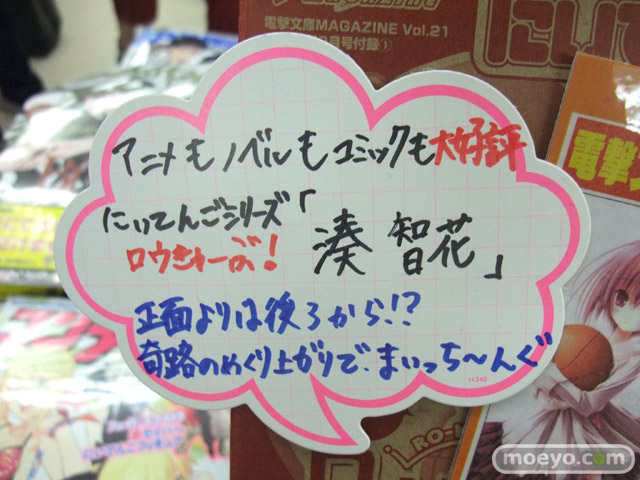 電撃文庫MAGAZINE Vol.21
月号付録①
にいて
アニメもノベルもコミックも大好評
にいてんごシリーズ「
ロウきゅーぶ!
湊 智花」
正面よりは後ろから!?
奇路のめくり上がりで、まいっち〜んぐ
電撃
RO-K
moeyo.com